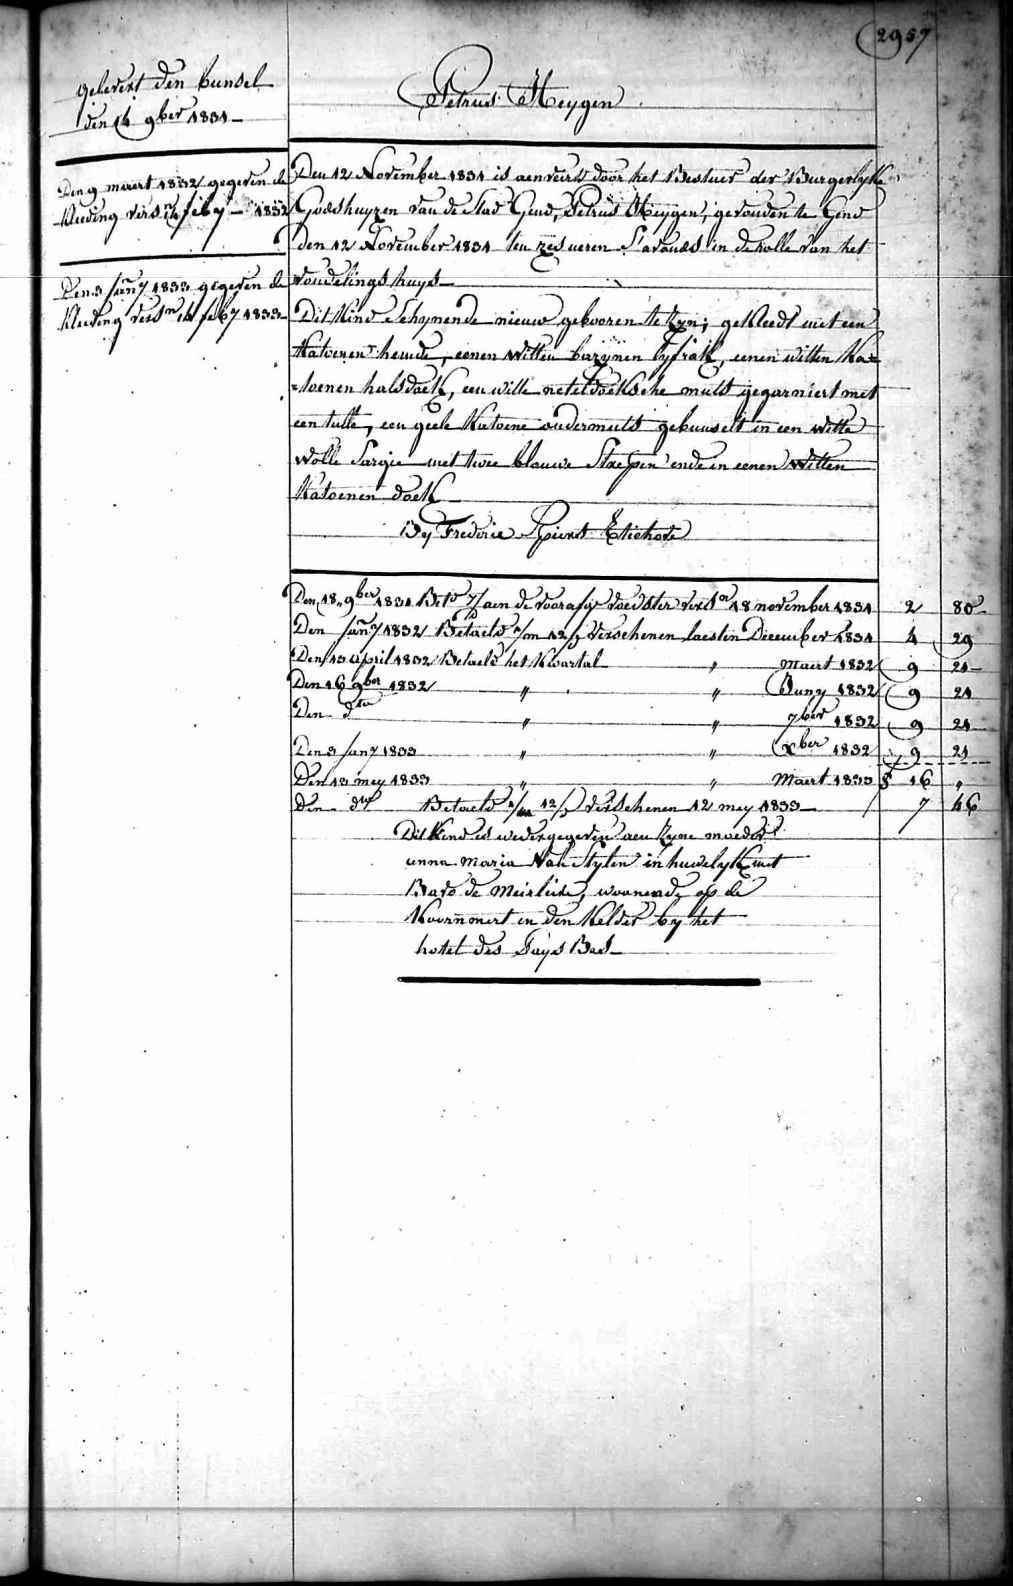 2957
gelevert den bunsel
den 14 9ber 1831
Petrus Heygen
Den 9 maert 1832 gegeven de
kleeding versn 14 feby 1832
Den 3 jany 1833 gegeven de
kleeding versn 14 feby 1833
Den 12 November 1831 is aenveird door het Bestuer der Burgerlyke
Godshuyzen van de Stad Gend, Petrus Heygen, gevonden te Gend
den 12 November 1831 ten zes ueren S'avonds in de rolle van het
vondelingshuys
Dit Kind Schynende nieuw gebooren te zyn; gekleedt met een
Katoenen hemde, eenen witten bazynen lyfrok, eenen witten Ka=
=toenen halsdoek, een witte neteldoeksche muts gegarniert met
een tulle, een geele Katoene ondermuts gebunselt in een witte
wolle Sargie met twee blauwe Streepen ende in eenen witten
Katoenen doek
By Frederic
Den 18 9ber 1831 Bet aen de voedster versn 18 november 1831 2 80
Den jany 1832 Betaeld 12/ verschenen laesten December 1831 4 29
Den 13 april 1832 Betaeld het Kwartal " Maert 1832 9 21
Den 16 9ber 1832 " " Juny 1832 9 21
Den dto " " 7ber 1832 9 21
Den 3 jany 1833 " " Xber 1832 9 21
Den 13 mey 1833 " " Maert 1833 16 "
den dto Betaeld 12/ verschenen 12 mey 1833 7 46
Dit Kind is wedergegeven aen zyne moeder
anna maria Van Stylen in huwelyk met
Bavo de Meirleire, woonende op de
Koornmert in den Kelder by het
hottel des Pays Bas